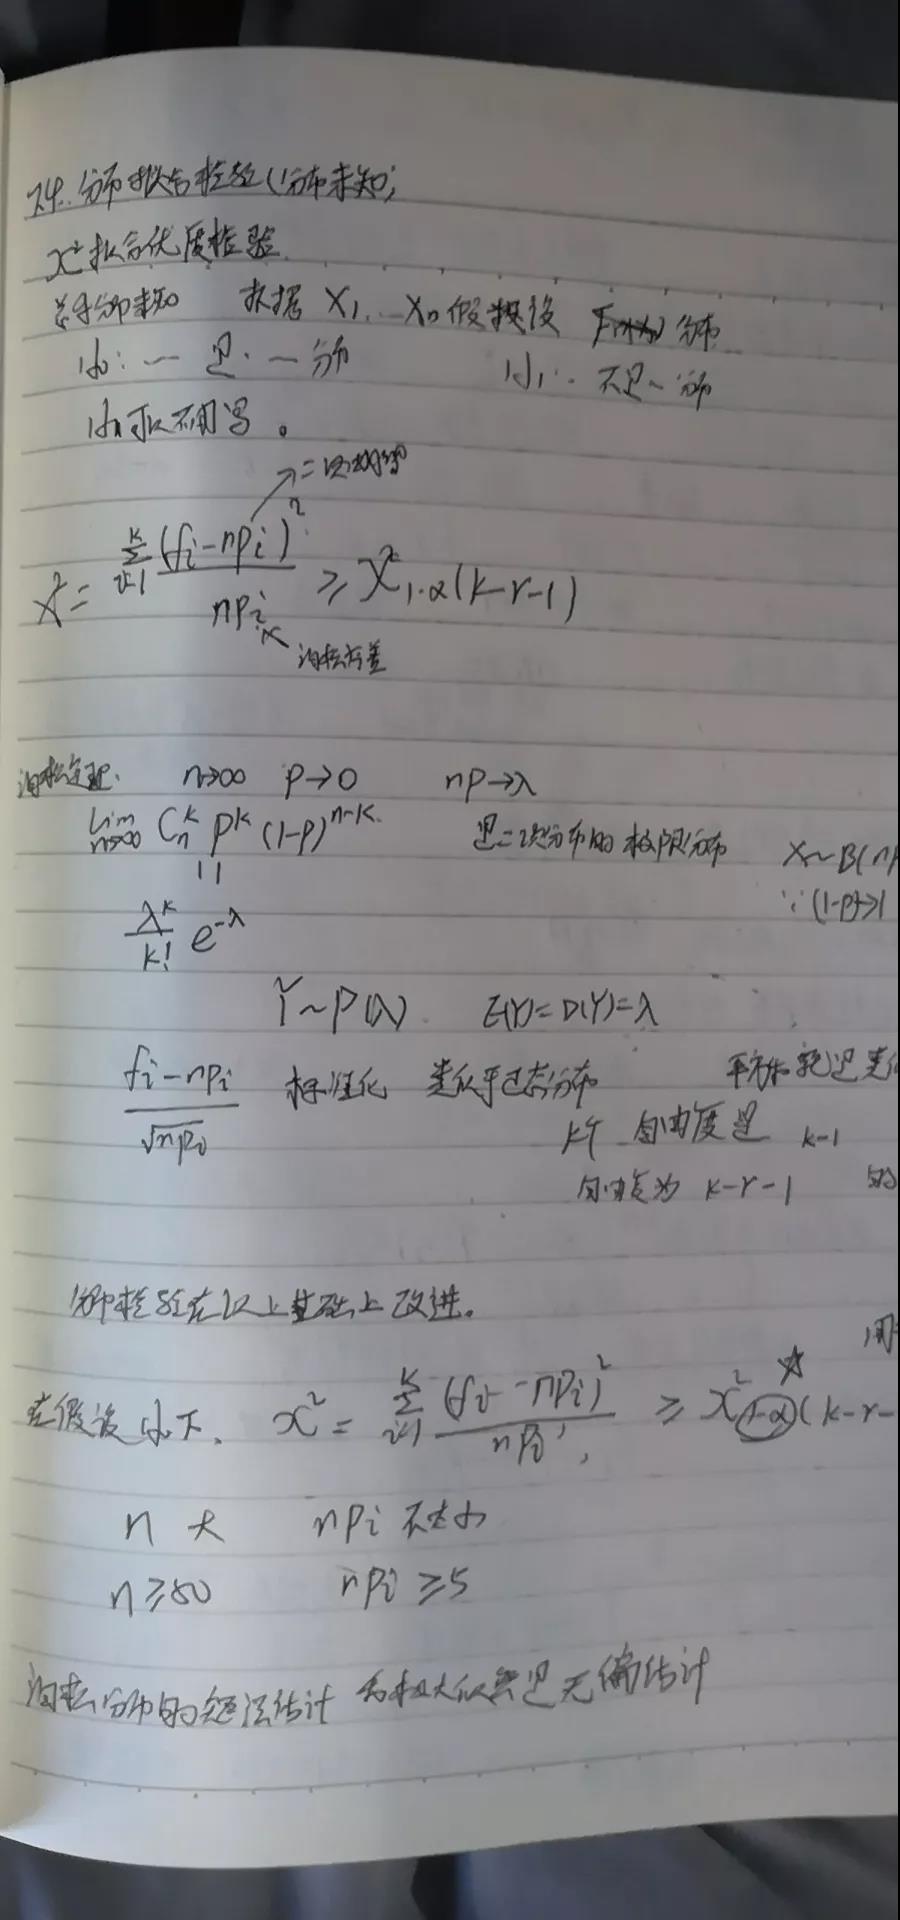 7.4. 分布拟合检验(分布未知)
χ²拟合优度检验
总体分布未知 根据 X₁, … Xₙ 假设 分布
H₀: 一 是 · 一分布 H₁: 不是~分布
H₁可以不用写。
= 二项
χ² = Σᵢ₌₁ᵏ (fᵢ-npᵢ)² / npᵢ ≥ χ²₁₋α(k-r-1)
泊松方差
泊松定理. n→∞ p→0 np→λ
lim n→∞ Cₙᵏ pᵏ (1-p)ⁿ⁻ᵏ 是二项分布的极限分布 X~B(np
|| ∵(1-p)→1
λᵏ/k! e^-λ
Y~P(λ). E(Y)=D(Y)=λ
fᵢ-npᵢ / √npᵢ 标准化 类似于正态分布 平方和就是类似
k个 自由度是 k-1
自由度为 k-r-1 的
分布检验在以上基础上改进.
用
在假设H₀下, χ² = Σᵢ₌₁ᵏ (fᵢ-npᵢ)² / npᵢ ≥ χ²₁₋α(k-r- ☆
n 大 npᵢ 不太小
n≥50 npᵢ≥5
泊松分布的矩法估计和极大似然是无偏估计